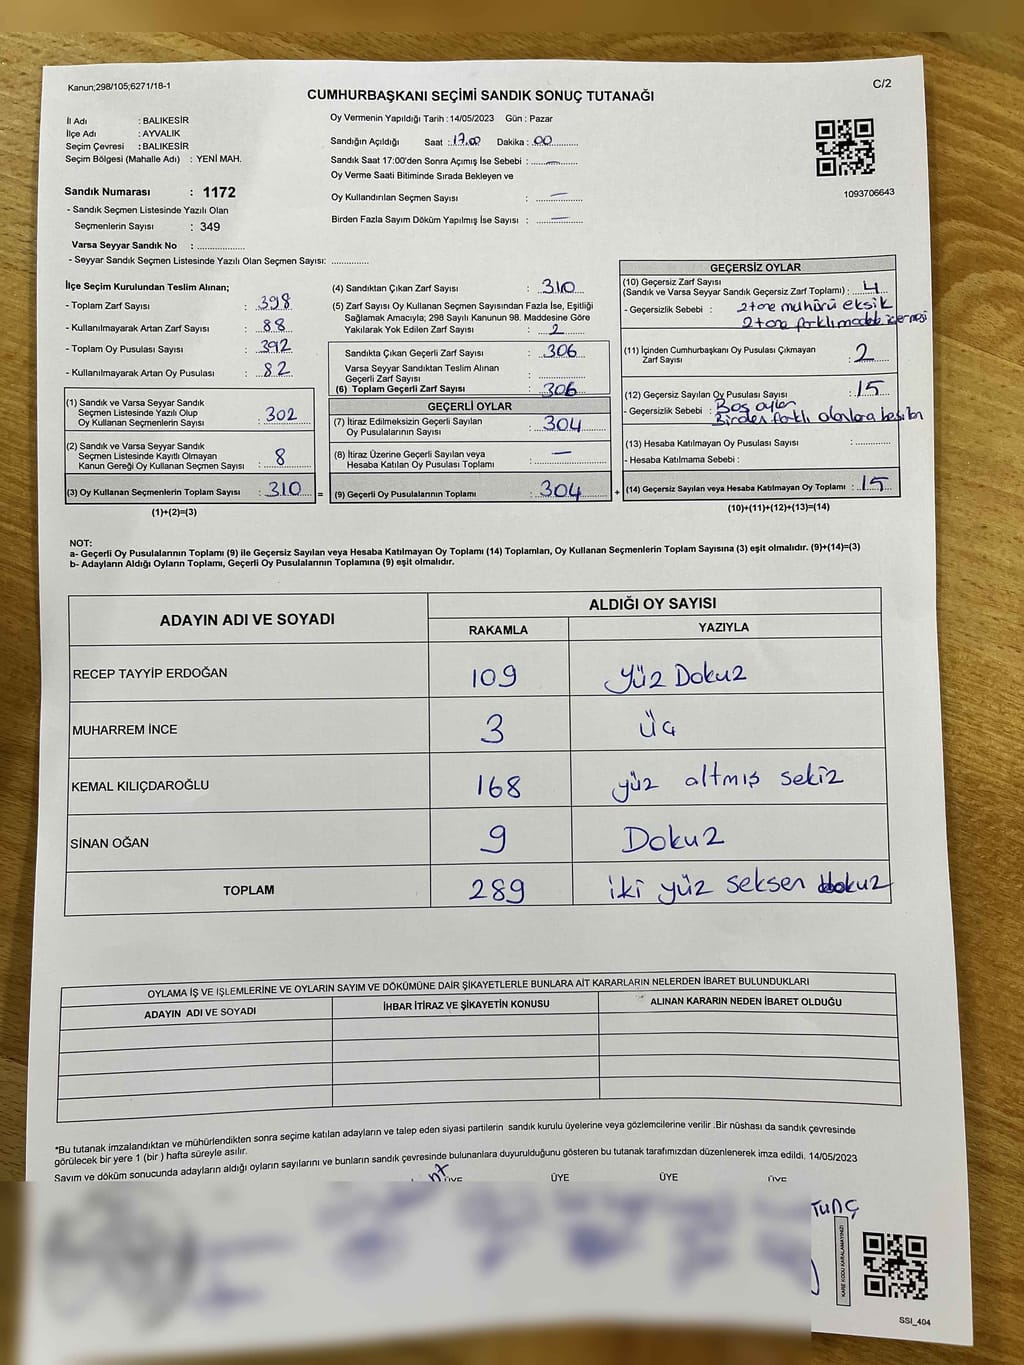 Kanun;298/105;6271/18-1
C/2
CUMHURBAŞKANI SEÇİMİ SANDIK SONUÇ TUTANAĞI
İl Adı : BALIKESİR
İlçe Adı : AYVALIK
Seçim Çevresi : BALIKESİR
Seçim Bölgesi (Mahalle Adı) : YENİ MAH.
Sandık Numarası : 1172
- Sandık Seçmen Listesinde Yazılı Olan
Seçmenlerin Sayısı : 349
Varsa Seyyar Sandık No : ................
- Seyyar Sandık Seçmen Listesinde Yazılı Olan Seçmen Sayısı: .............
Oy Vermenin Yapıldığı Tarih : 14/05/2023 Gün : Pazar
Sandığın Açıldığı Saat : 17.00 Dakika : 00
Sandık Saat 17:00'den Sonra Açımış İse Sebebi : —
Oy Verme Saati Bitiminde Sırada Bekleyen ve
Oy Kullandırılan Seçmen Sayısı : —
Birden Fazla Sayım Döküm Yapılmış İse Sayısı : —
1093706643
İlçe Seçim Kurulundan Teslim Alınan;
- Toplam Zarf Sayısı : 398
- Kullanılmayarak Artan Zarf Sayısı : 88
- Toplam Oy Pusulası Sayısı : 392
- Kullanılmayarak Artan Oy Pusulası : 82
(1) Sandık ve Varsa Seyyar Sandık
Seçmen Listesinde Yazılı Olup
Oy Kullanan Seçmenlerin Sayısı : 302
(2) Sandık ve Varsa Seyyar Sandık
Seçmen Listesinde Kayıtlı Olmayan
Kanun Gereği Oy Kullanan Seçmen Sayısı : 8
(3) Oy Kullanan Seçmenlerin Toplam Sayısı : 310 =
(1)+(2)=(3)
(4) Sandıktan Çıkan Zarf Sayısı : 310
(5) Zarf Sayısı Oy Kullanan Seçmen Sayısından Fazla İse, Eşitliği
Sağlamak Amacıyla; 298 Sayılı Kanunun 98. Maddesine Göre
Yakılarak Yok Edilen Zarf Sayısı : 2
Sandıkta Çıkan Geçerli Zarf Sayısı : 306
Varsa Seyyar Sandıktan Teslim Alınan
Geçerli Zarf Sayısı :
(6) Toplam Geçerli Zarf Sayısı : 306
GEÇERLİ OYLAR
(7) İtiraz Edilmeksizin Geçerli Sayılan
Oy Pusulalarının Sayısı : 304
(8) İtiraz Üzerine Geçerli Sayılan veya
Hesaba Katılan Oy Pusulası Toplamı : —
(9) Geçerli Oy Pusulalarının Toplamı : 304 +
GEÇERSİZ OYLAR
(10) Geçersiz Zarf Sayısı
(Sandık ve Varsa Seyyar Sandık Geçersiz Zarf Toplamı) : 4
- Geçersizlik Sebebi : 2 tane mühürü eksik
2 tane farklı madde içermesi
(11) İçinden Cumhurbaşkanı Oy Pusulası Çıkmayan
Zarf Sayısı : 2
(12) Geçersiz Sayılan Oy Pusulası Sayısı : 15
- Geçersizlik Sebebi : Boş oylar
Birden farklı alanlara
(13) Hesaba Katılmayan Oy Pusulası Sayısı :
- Hesaba Katılmama Sebebi :
(14) Geçersiz Sayılan veya Hesaba Katılmayan Oy Toplamı : 15
(10)+(11)+(12)+(13)=(14)
NOT:
a- Geçerli Oy Pusulalarının Toplamı (9) ile Geçersiz Sayılan veya Hesaba Katılmayan Oy Toplamı (14) Toplamları, Oy Kullanan Seçmenlerin Toplam Sayısına (3) eşit olmalıdır. (9)+(14)=(3)
b- Adayların Aldığı Oyların Toplamı, Geçerli Oy Pusulalarının Toplamına (9) eşit olmalıdır.
ADAYIN ADI VE SOYADI ALDIĞI OY SAYISI
RAKAMLA YAZIYLA
RECEP TAYYİP ERDOĞAN 109 yüz Dokuz
MUHARREM İNCE 3 üç
KEMAL KILIÇDAROĞLU 168 yüz altmış sekiz
SİNAN OĞAN 9 Dokuz
TOPLAM 289 iki yüz seksen dokuz
OYLAMA İŞ VE İŞLEMLERİNE VE OYLARIN SAYIM VE DÖKÜMÜNE DAİR ŞİKAYETLERLE BUNLARA AİT KARARLARIN NELERDEN İBARET BULUNDUKLARI
ADAYIN ADI VE SOYADI İHBAR İTİRAZ VE ŞİKAYETİN KONUSU ALINAN KARARIN NEDEN İBARET OLDUĞU
*Bu tutanak imzalandıktan ve mühürlendikten sonra seçime katılan adayların ve talep eden siyasi partilerin sandık kurulu üyelerine veya gözlemcilerine verilir .Bir nüshası da sandık çevresinde
görülecek bir yere 1 (bir ) hafta süreyle asılır.
Sayım ve döküm sonucunda adayların aldığı oyların sayılarını ve bunların sandık çevresinde bulunanlara duyurulduğunu gösteren bu tutanak tarafımızdan düzenlenerek imza edildi. 14/05/2023
ÜYE ÜYE ÜYE ÜYE
TUNÇ
KARE KODU KARALAMAYINIZ!
SSI_404